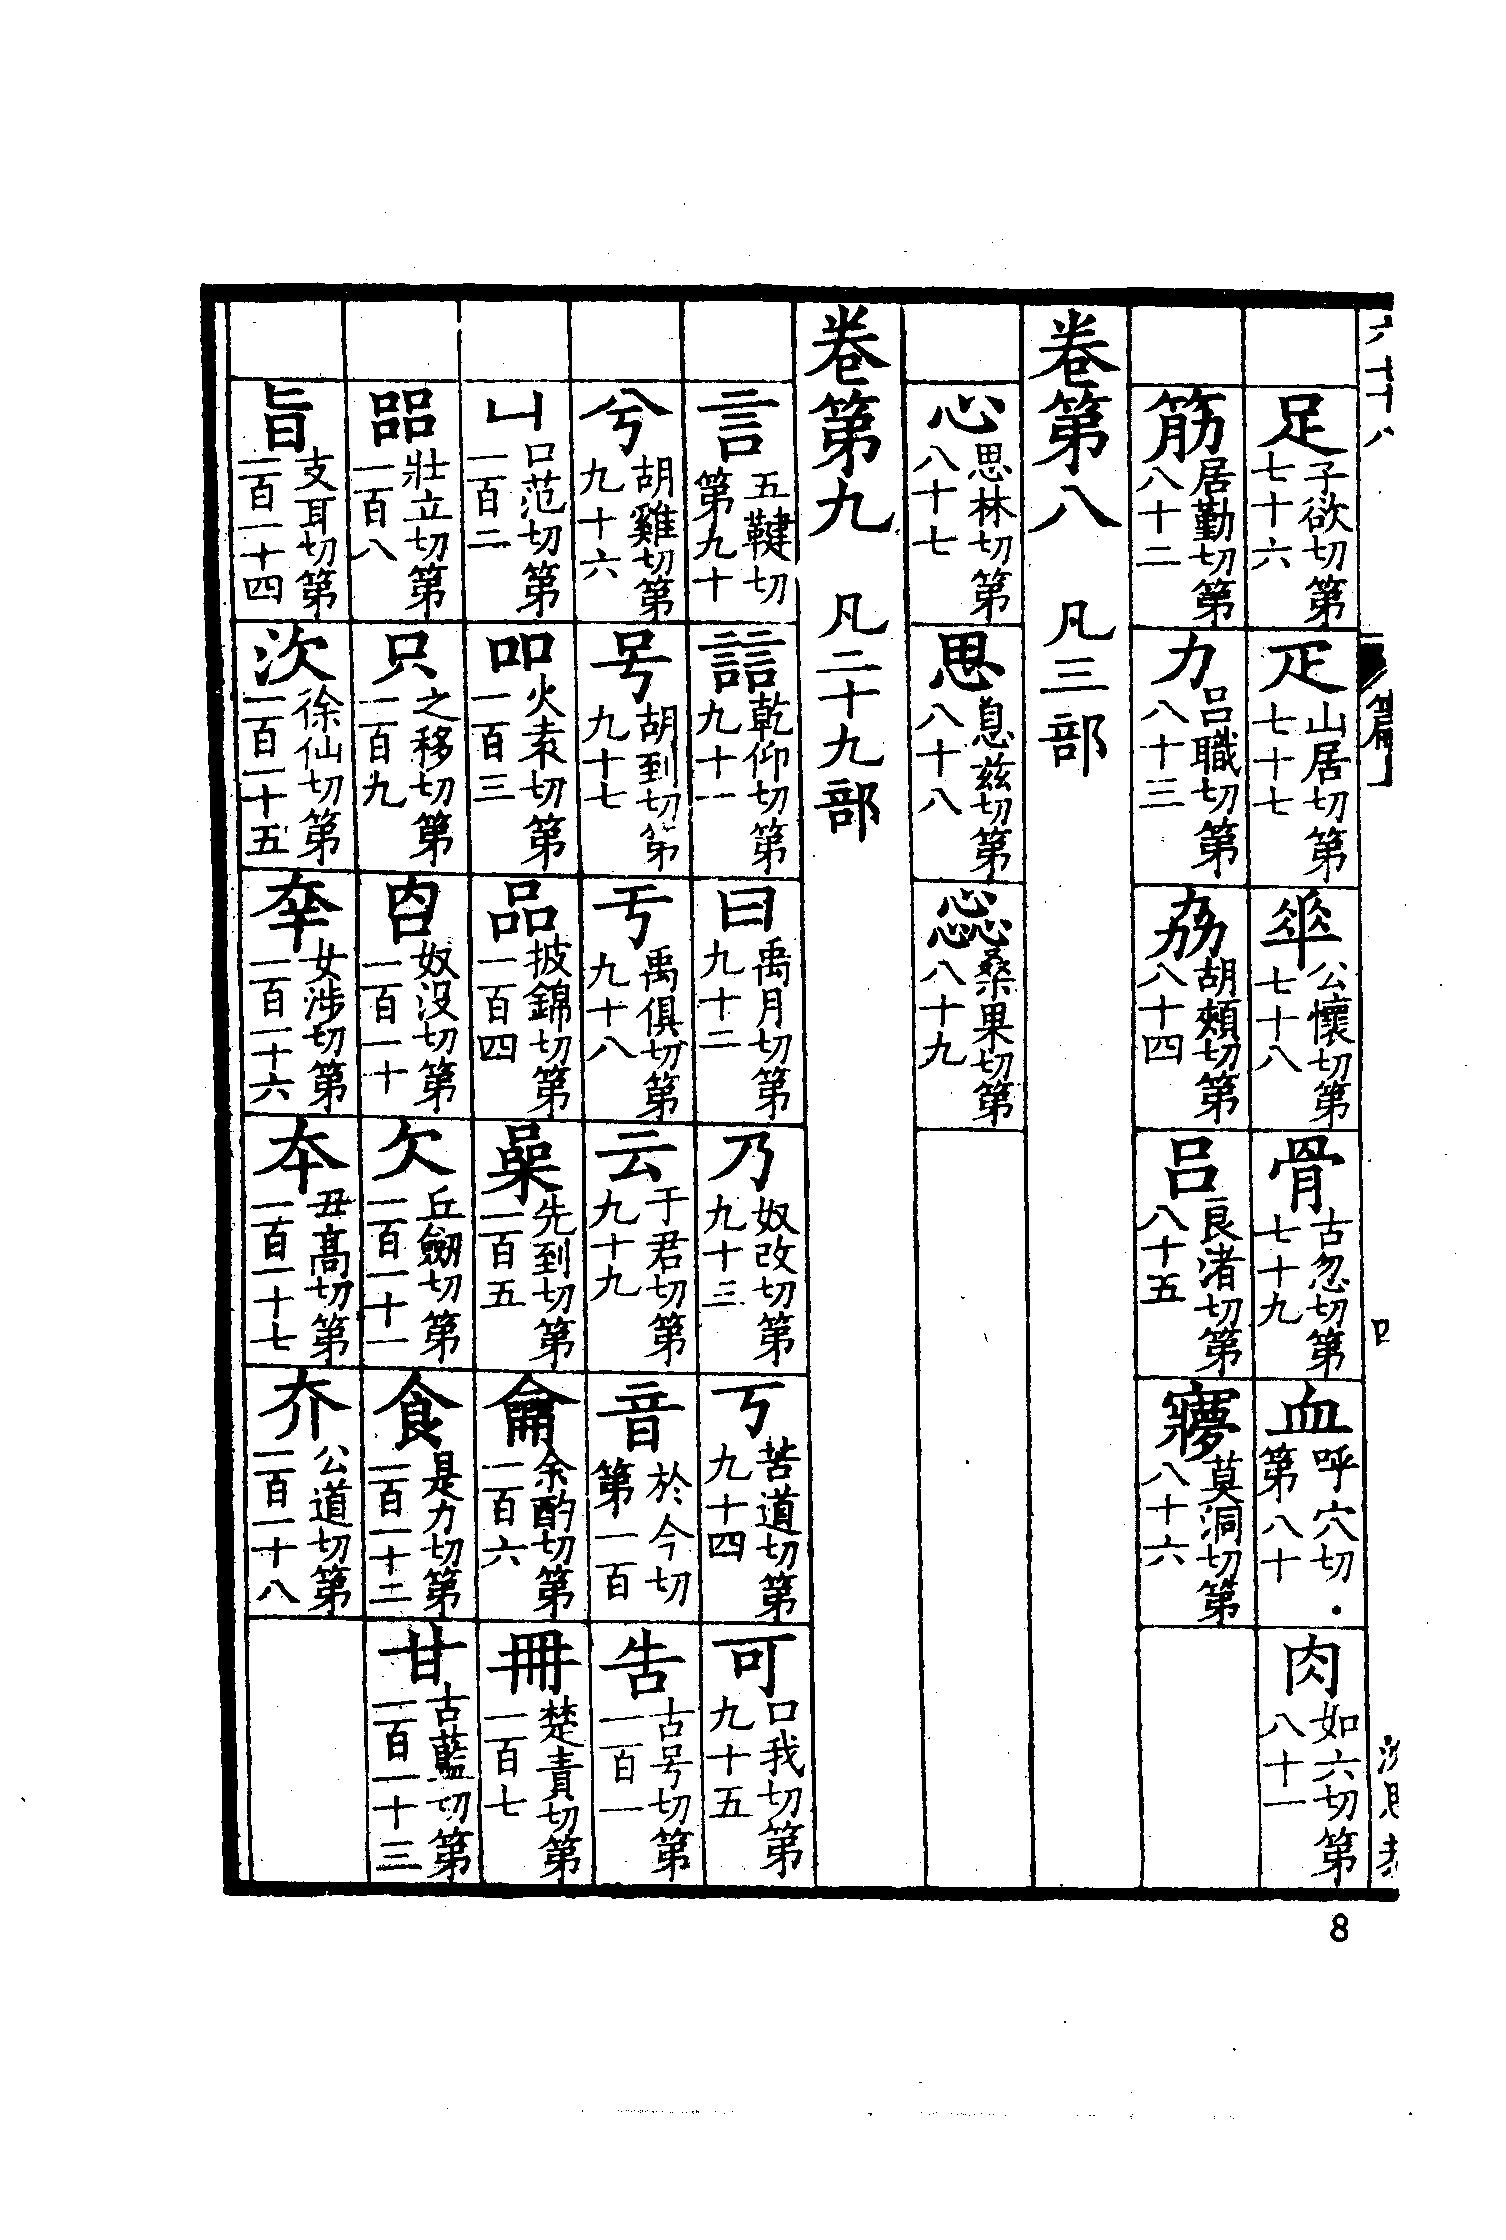 足子欲切第七十六 疋山居切第七十七 𠦬公懷切第七十八 骨古忽切第七十九 血呼穴切第八十 肉如六切第八十一
筋居勤切第八十二 力呂職切第八十三 劦胡頰切第八十四 呂良渚切第八十五 㝱莫洞切第八十六
卷第八 凡三部
心思林切第八十七 思息兹切第八十八 惢桑果切第八十九
卷第九 凡二十九部
言五鞬切第九十 誩乾仰切第九十一 曰禹月切第九十二 乃奴改切第九十三 丂苦道切第九十四 可口我切第九十五
兮胡雞切第九十六 号胡到切第九十七 亏禹俱切第九十八 云于君切第九十九 音於今切第一百 告古号切第一百一
凵口范切第一百二 吅火袁切第一百三 品披錦切第一百四 喿先到切第一百五 龠余酌切第一百六 冊楚責切第一百七
㗊壯立切第一百八 只之移切第一百九 㕯奴沒切第一百一十 欠丘劒切第一百一十一 食是力切第一百一十二 甘古藍切第一百一十三
旨支耳切第一百一十四 㳄徐仙切第一百一十五 㚔女涉切第一百一十六 夲丑高切第一百一十七 夰公道切第一百一十八
8